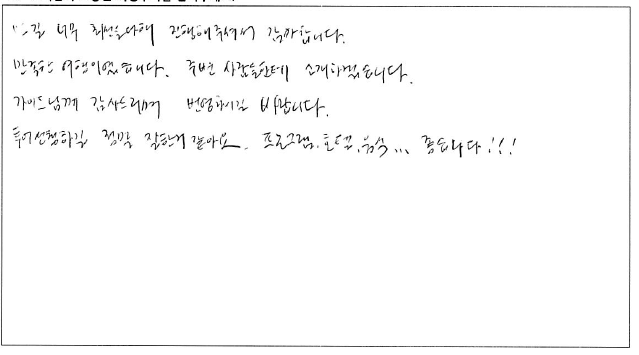 너무 최선을다해 진행해주셔서 감사합니다.
만족한 여행이었습니다. 주변 사람들한테 소개하겠습니다.
가이드님께 감사드리며 번영하시길 바랍니다.
투어선택하길 정말 잘한거 같아요. 프로그램, 호텔, 음식... 좋습니다!!!